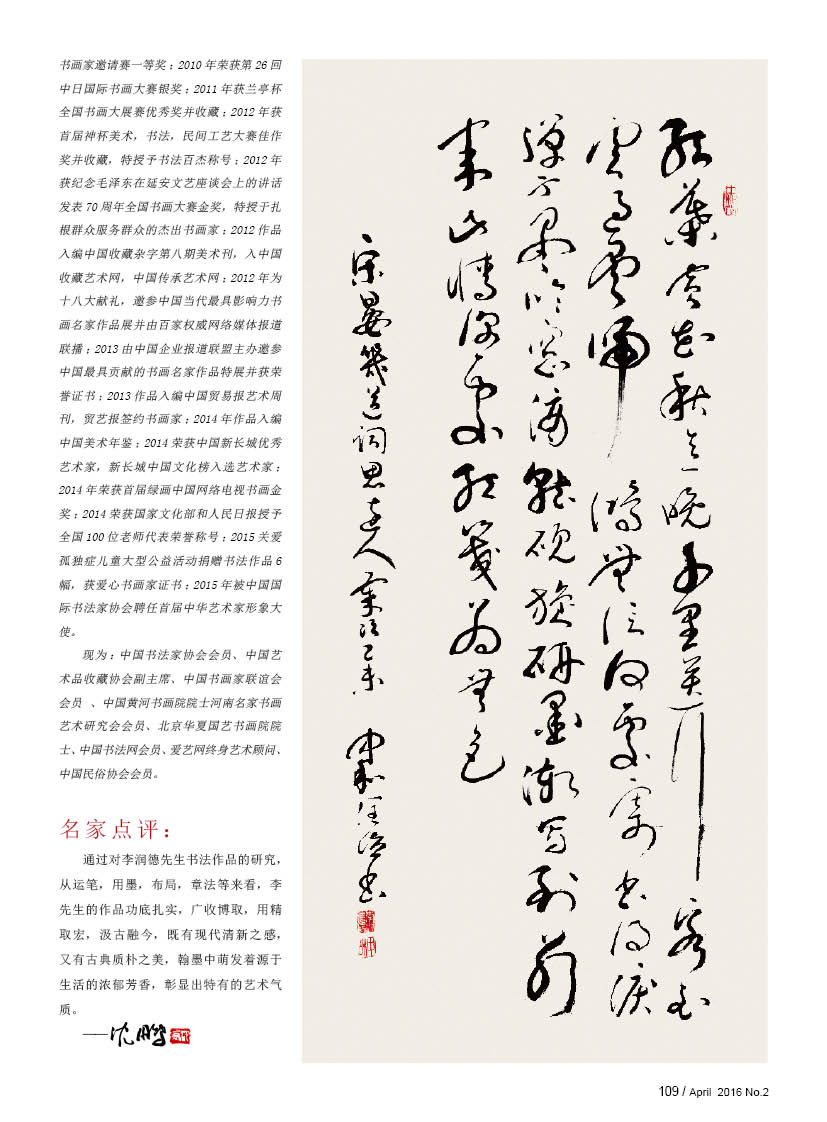 书画家邀请赛一等奖；2010 年荣获第 26 回
中日国际书画大赛银奖；2011 年获兰亭杯
全国书画大展赛优秀奖并收藏；2012 年获
首届神杯美术，书法，民间工艺大赛佳作
奖并收藏，特授予书法百杰称号；2012 年
获纪念毛泽东在延安文艺座谈会上的讲话
发表 70 周年全国书画大赛金奖，特授于扎
根群众服务群众的杰出书画家；2012 作品
入编中国收藏杂字第八期美术刊，入中国
收藏艺术网，中国传承艺术网；2012 年为
十八大献礼，邀参中国当代最具影响力书
画名家作品展并由百家权威网络媒体报道
联播；2013 由中国企业报道联盟主办邀参
中国最具贡献的书画名家作品特展并获荣
誉证书；2013 作品入编中国贸易报艺术周
刊，贸艺报签约书画家；2014 年作品入编
中国美术年鉴；2014 荣获中国新长城优秀
艺术家，新长城中国文化榜入选艺术家；
2014 年荣获首届绿画中国网络电视书画金
奖；2014 荣获国家文化部和人民日报授予
全国 100 位老师代表荣誉称号；2015 关爱
孤独症儿童大型公益活动捐赠书法作品 6
幅，获爱心书画家证书；2015 年被中国国
际书法家协会聘任首届中华艺术家形象大
使。
现为：中国书法家协会会员、中国艺
术品收藏协会副主席、中国书画家联谊会
会员 、中国黄河书画院院士河南名家书画
艺术研究会会员、北京华夏国艺书画院院
士、中国书法网会员、爱艺网终身艺术顾问、
中国民俗协会会员。
名家点评：
通过对李润德先生书法作品的研究，
从运笔，用墨，布局，章法等来看，李
先生的作品功底扎实，广收博取，用精
取宏，汲古融今，既有现代清新之感，
又有古典质朴之美，翰墨中萌发着源于
生活的浓郁芳香，彰显出特有的艺术气
质。
——沈鹏
紅葉黄花秋意晚千里念行客飛
雲過盡歸鴻無信何處寄書得淚
彈不盡臨窗滴就硯旋研墨漸寫到別
來此情深處紅箋為無色
宋晏幾道詞思遠人 歲次乙未
109 / April 2016 No.2